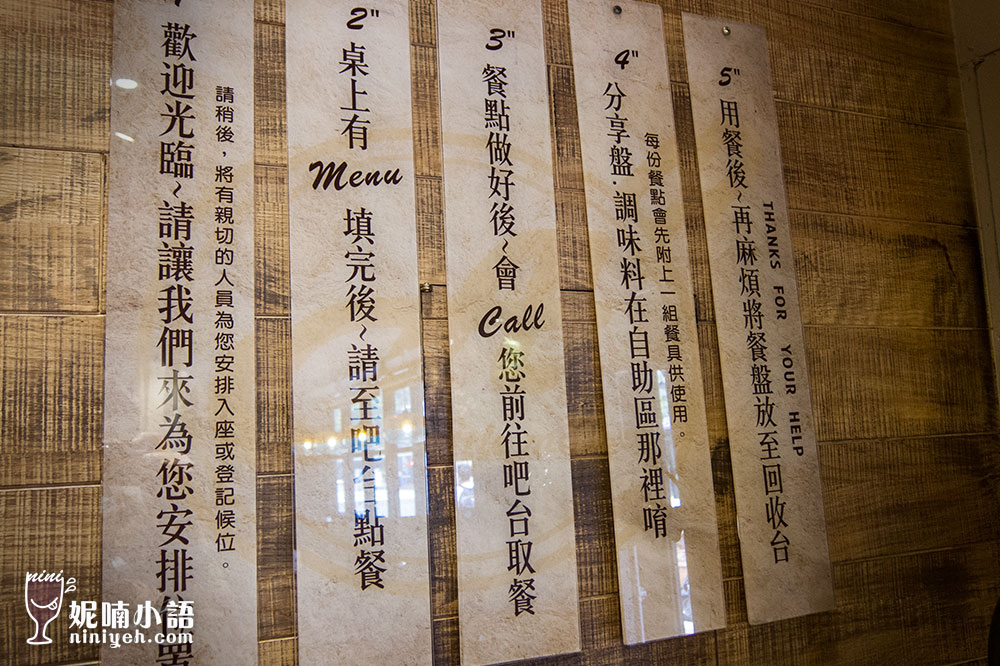 歡迎光臨~請讓我們來為您安排位置
請稍後，將有親切的人員為您安排入座或登記候位。
2"
桌上有
Menu
填完後~請至吧台點餐
3"
餐點做好後~會
Call
您前往吧台取餐
4"
分享盤·調味料在自助區那裡唷
每份餐點會先附上一組餐具供使用。
5"
用餐後~再麻煩將餐盤放至回收台
THANKS FOR YOUR HELP
nini
妮喃小語
niniyeh.com